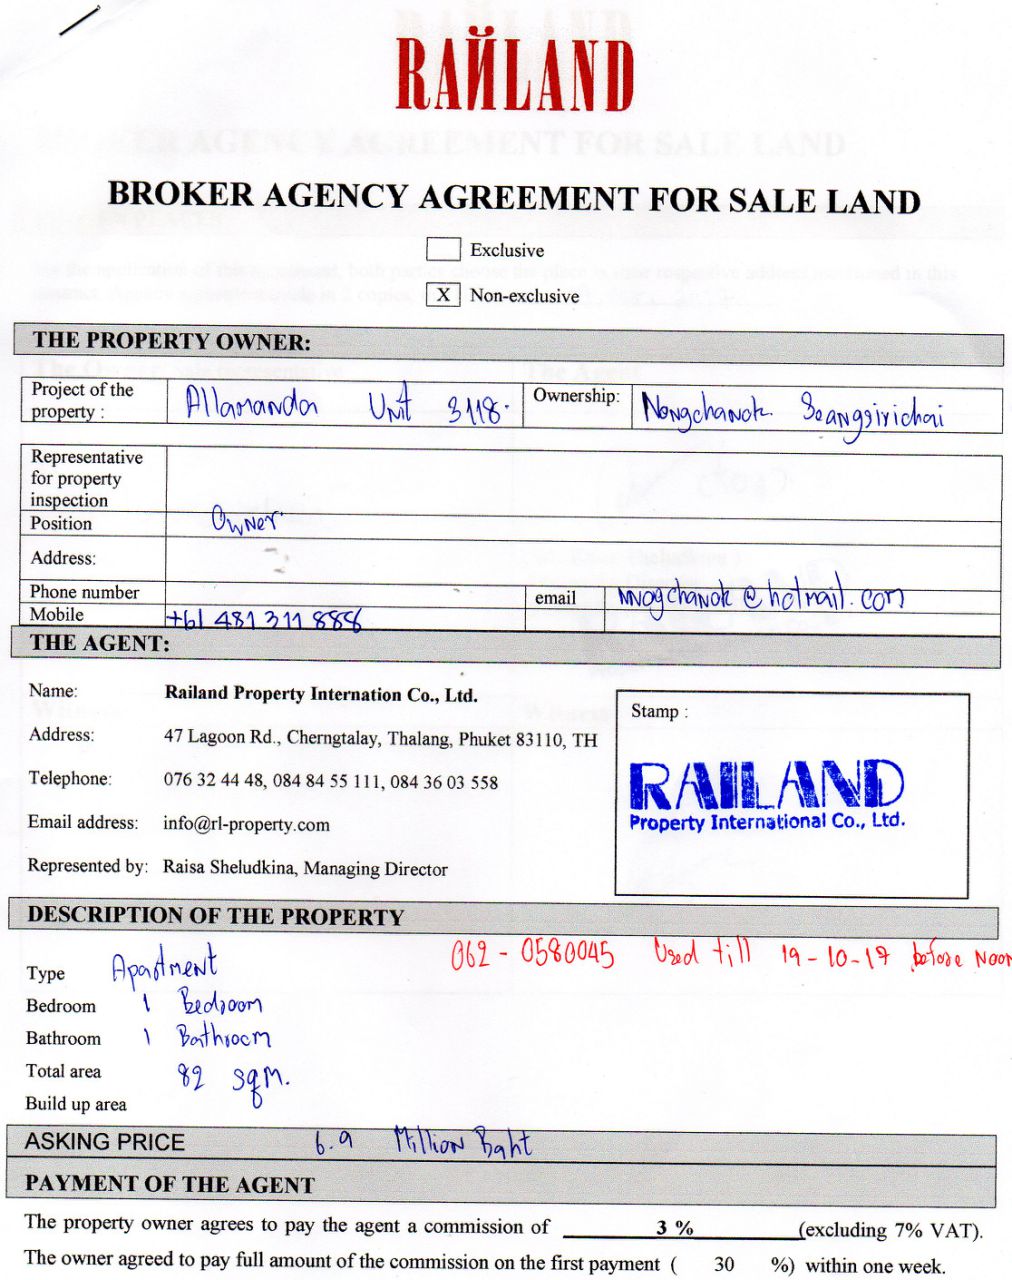 RAЙLAND
BROKER AGENCY AGREEMENT FOR SALE LAND
Exclusive
X Non-exclusive
THE PROPERTY OWNER:
Project of the property : Allamanda Unit 3118. Ownership: Nongchanok Seangsirichai
Representative
for property
inspection
Position Owner
Address:
Phone number email nnogchanok@hotmail.com
Mobile +61 481 311 888
THE AGENT:
Name: Railand Property Internation Co., Ltd.
Stamp :
Address: 47 Lagoon Rd., Cherngtalay, Thalang, Phuket 83110, TH
RAILAND
Property International Co., Ltd.
Telephone: 076 32 44 48, 084 84 55 111, 084 36 03 558
Email address: info@rl-property.com
Represented by: Raisa Sheludkina, Managing Director
DESCRIPTION OF THE PROPERTY
062-0580045 Used till 19-10-17 before Noon
Type Apartment
Bedroom 1 Bedroom
Bathroom 1 Bathroom
Total area 82 sqm.
Build up area
ASKING PRICE 6.9 Million Baht
PAYMENT OF THE AGENT
The property owner agrees to pay the agent a commission of 3 % (excluding 7% VAT).
The owner agreed to pay full amount of the commission on the first payment ( 30 %) within one week.